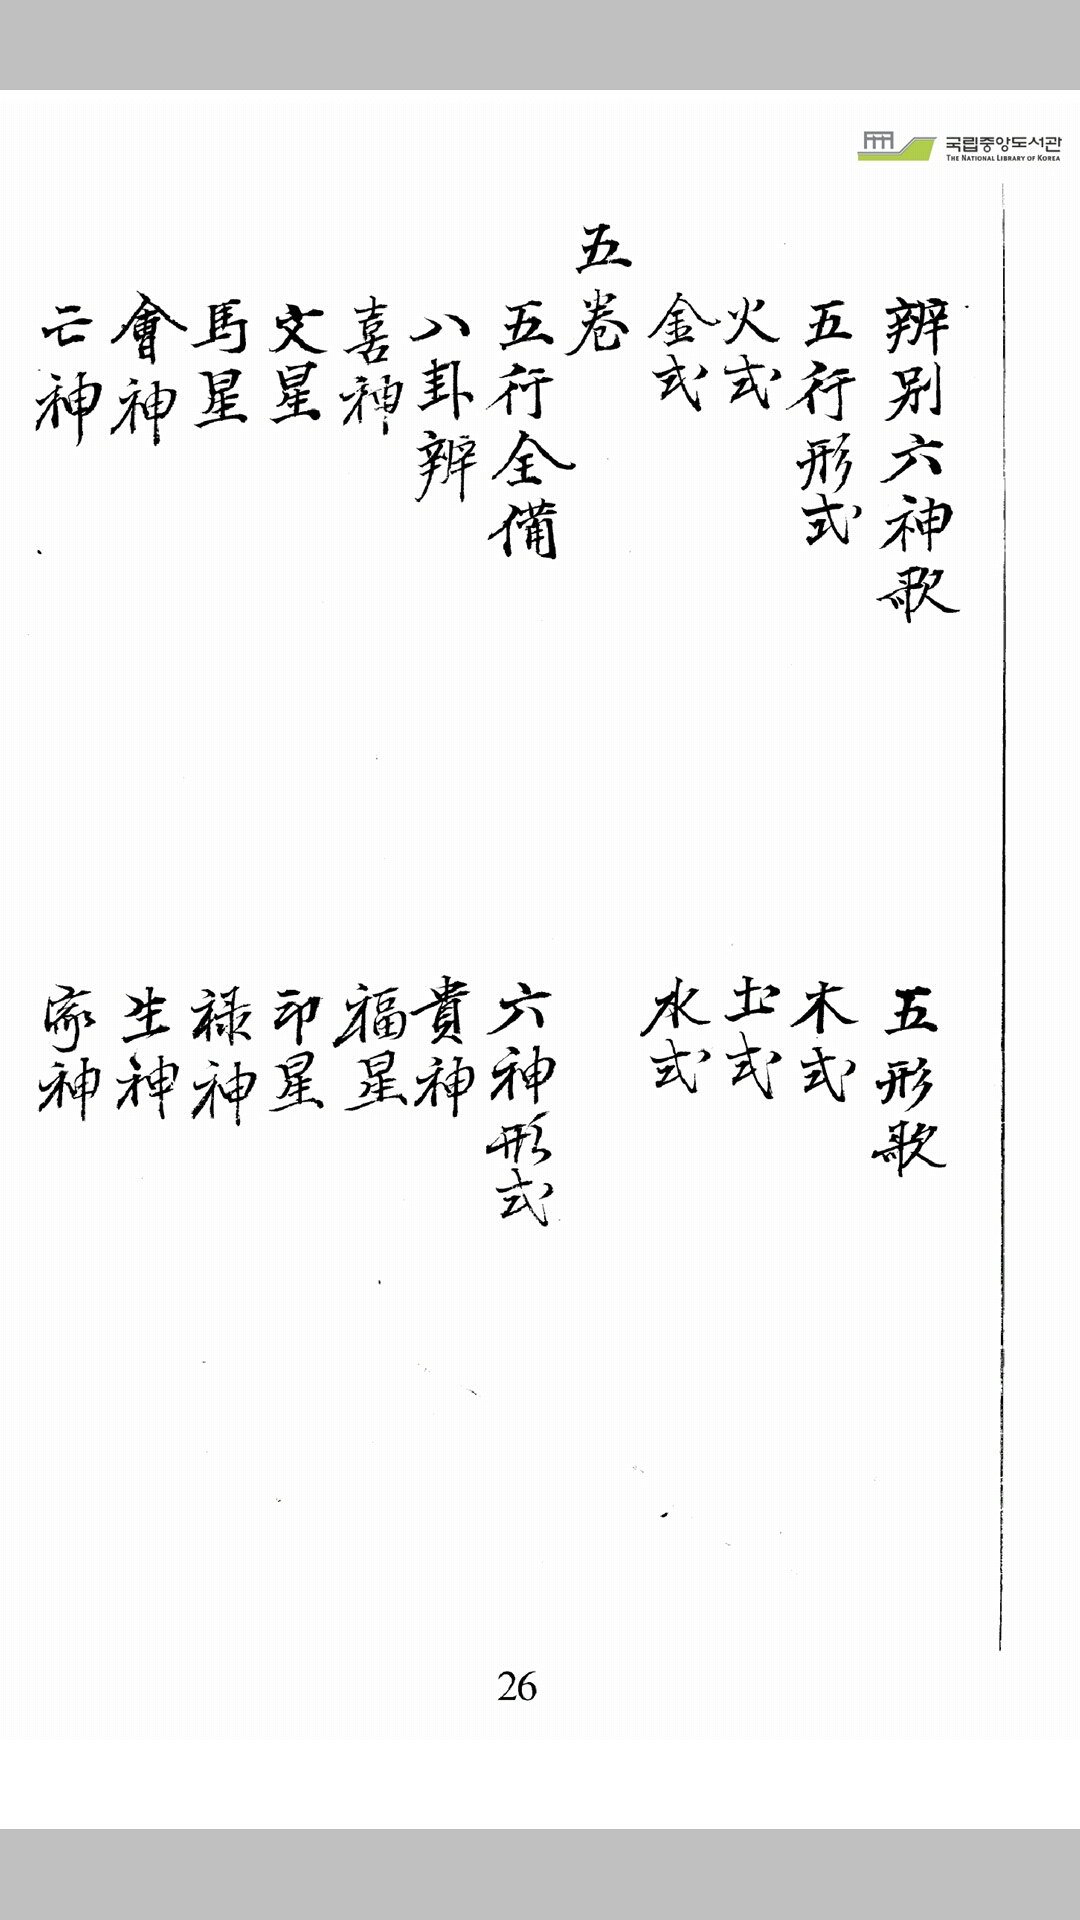 국립중앙도서관
THE NATIONAL LIBRARY OF KOREA
辨别六神歌 五形歌
五行形式 木式
火式 土式
金式 水式
五卷
五行全備 六神形式
八卦辨 貴神
喜神 福星
文星 印星
馬星 禄神
會神 生神
亡神 家神
26